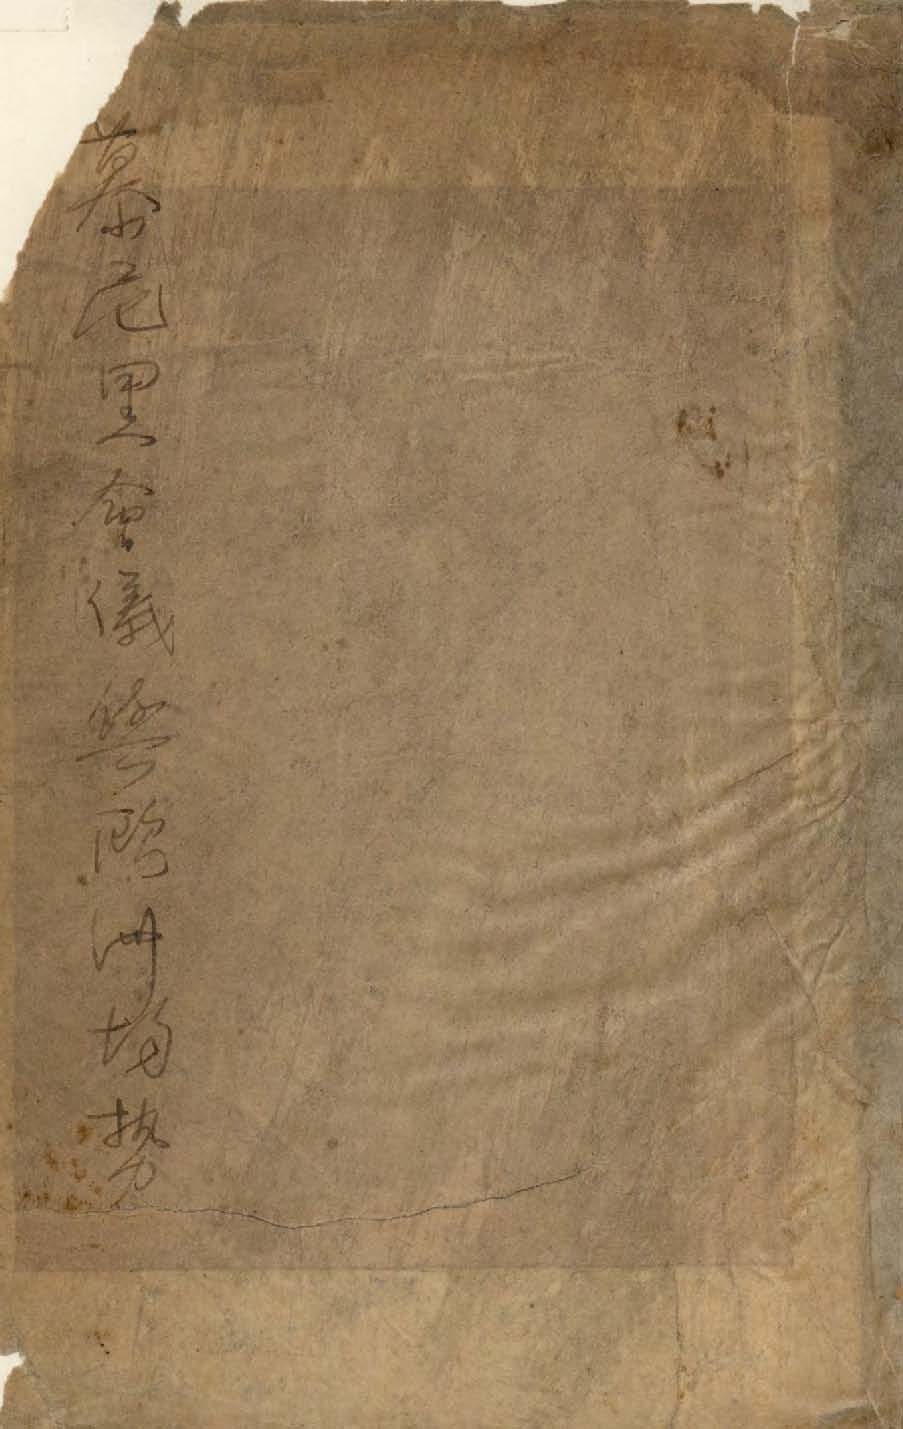 慕尼黑會議與歐洲局勢